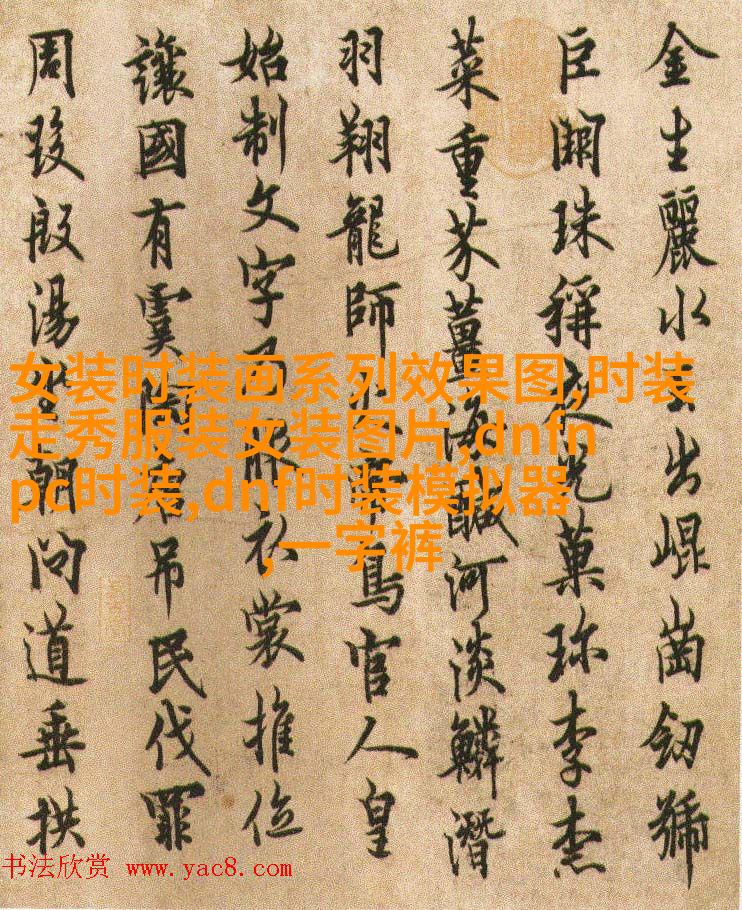 金生麗水玉出崐崗劒號
巨闕珠稱夜光菓珎李柰
菜重芥薑海鹹河淡鱗潛
羽翔龍師火帝鳥官人皇
始制文字乃服衣裳推位
讓國有虞陶唐吊民伐罪
周發殷湯坐朝問道垂拱
女装时装画系列效果图,时装
走秀服装女装图片,dnfn
pc时装,dnf时装模拟器
,一字裤
书法欣赏 www.yac8.com